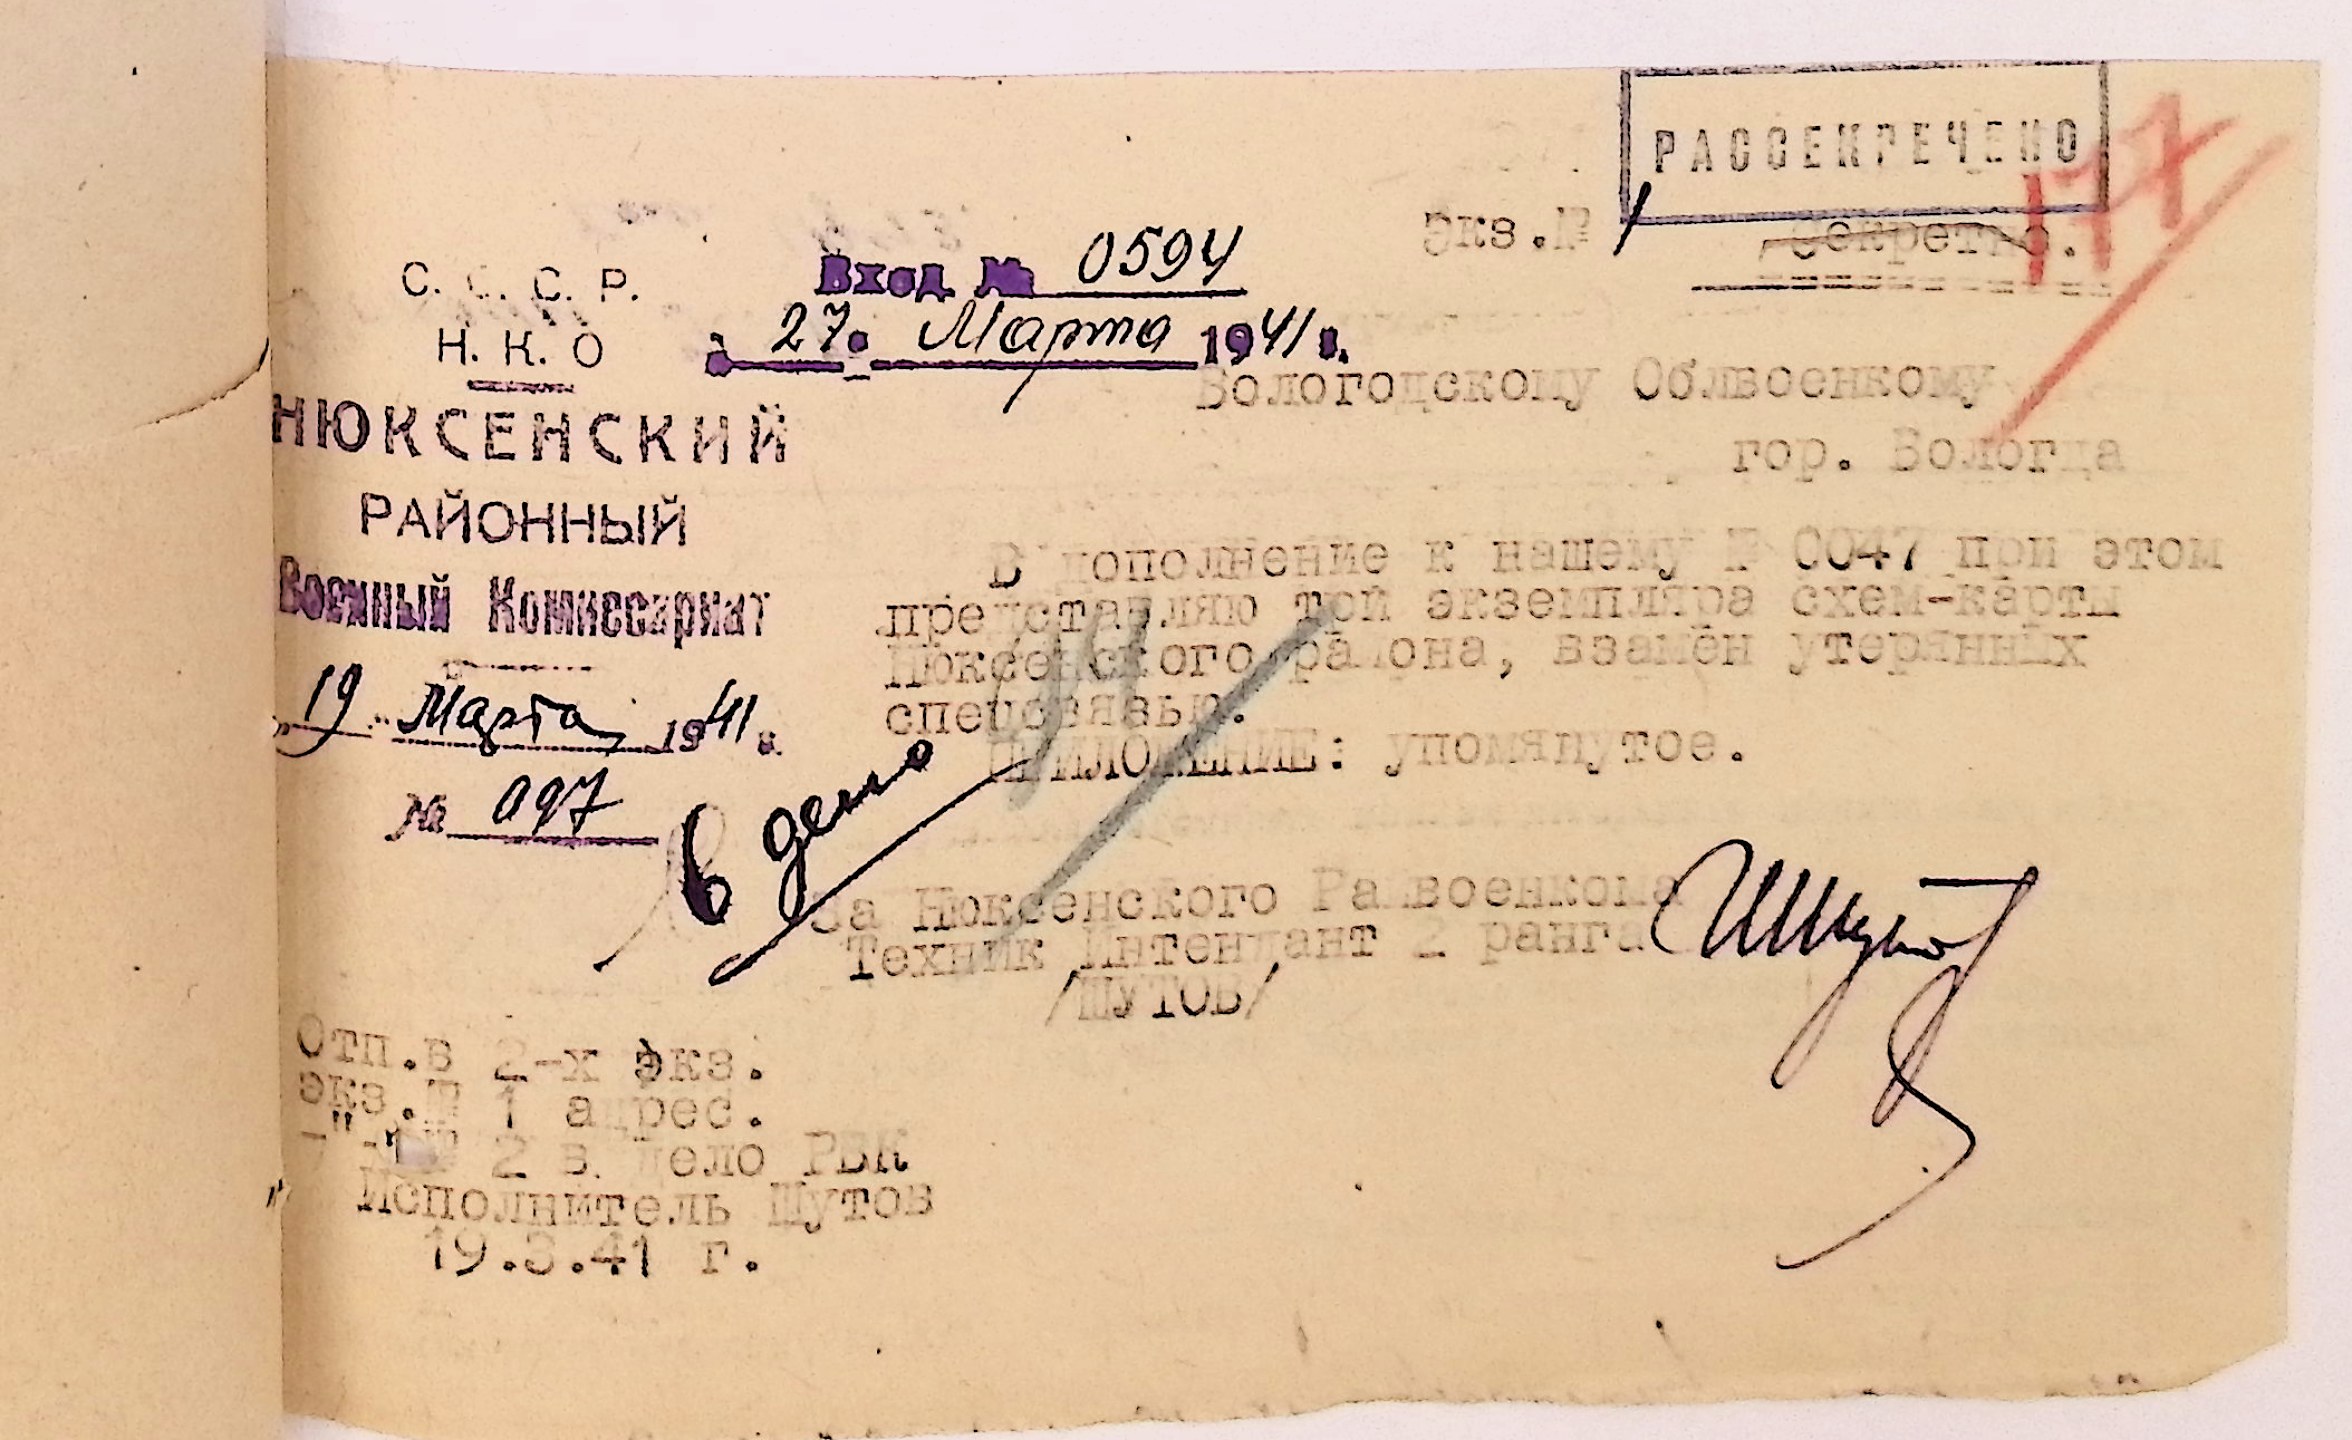 РАССЕКРЕЧЕНО
Экз.№ 1 Секретно.
117
С. С. С. Р.
Н. К. О
НЮКСЕНСКИЙ
РАЙОННЫЙ
Военный Комиссариат
„19" Марта 1941 г.
№ 097
Вход № 0594
27 Марта 1941 г.
Вологодскому Облвоенкому
гор. Вологда
В дополнение к нашему № 0047 при этом
представляю три экземпляра схем-карты
Нюксенского района, взамен утерянных
спецсвязью.
ПРИЛОЖЕНИЕ: упомянутое.
В дело
За Нюксенского Райвоенкома
Техник Интендант 2 ранга
/ШУТОВ/
Отп.в 2-х экз.
экз.№ 1 адрес.
-"-№ 2 в дело РВК
Исполнитель Шутов
19.3.41 г.